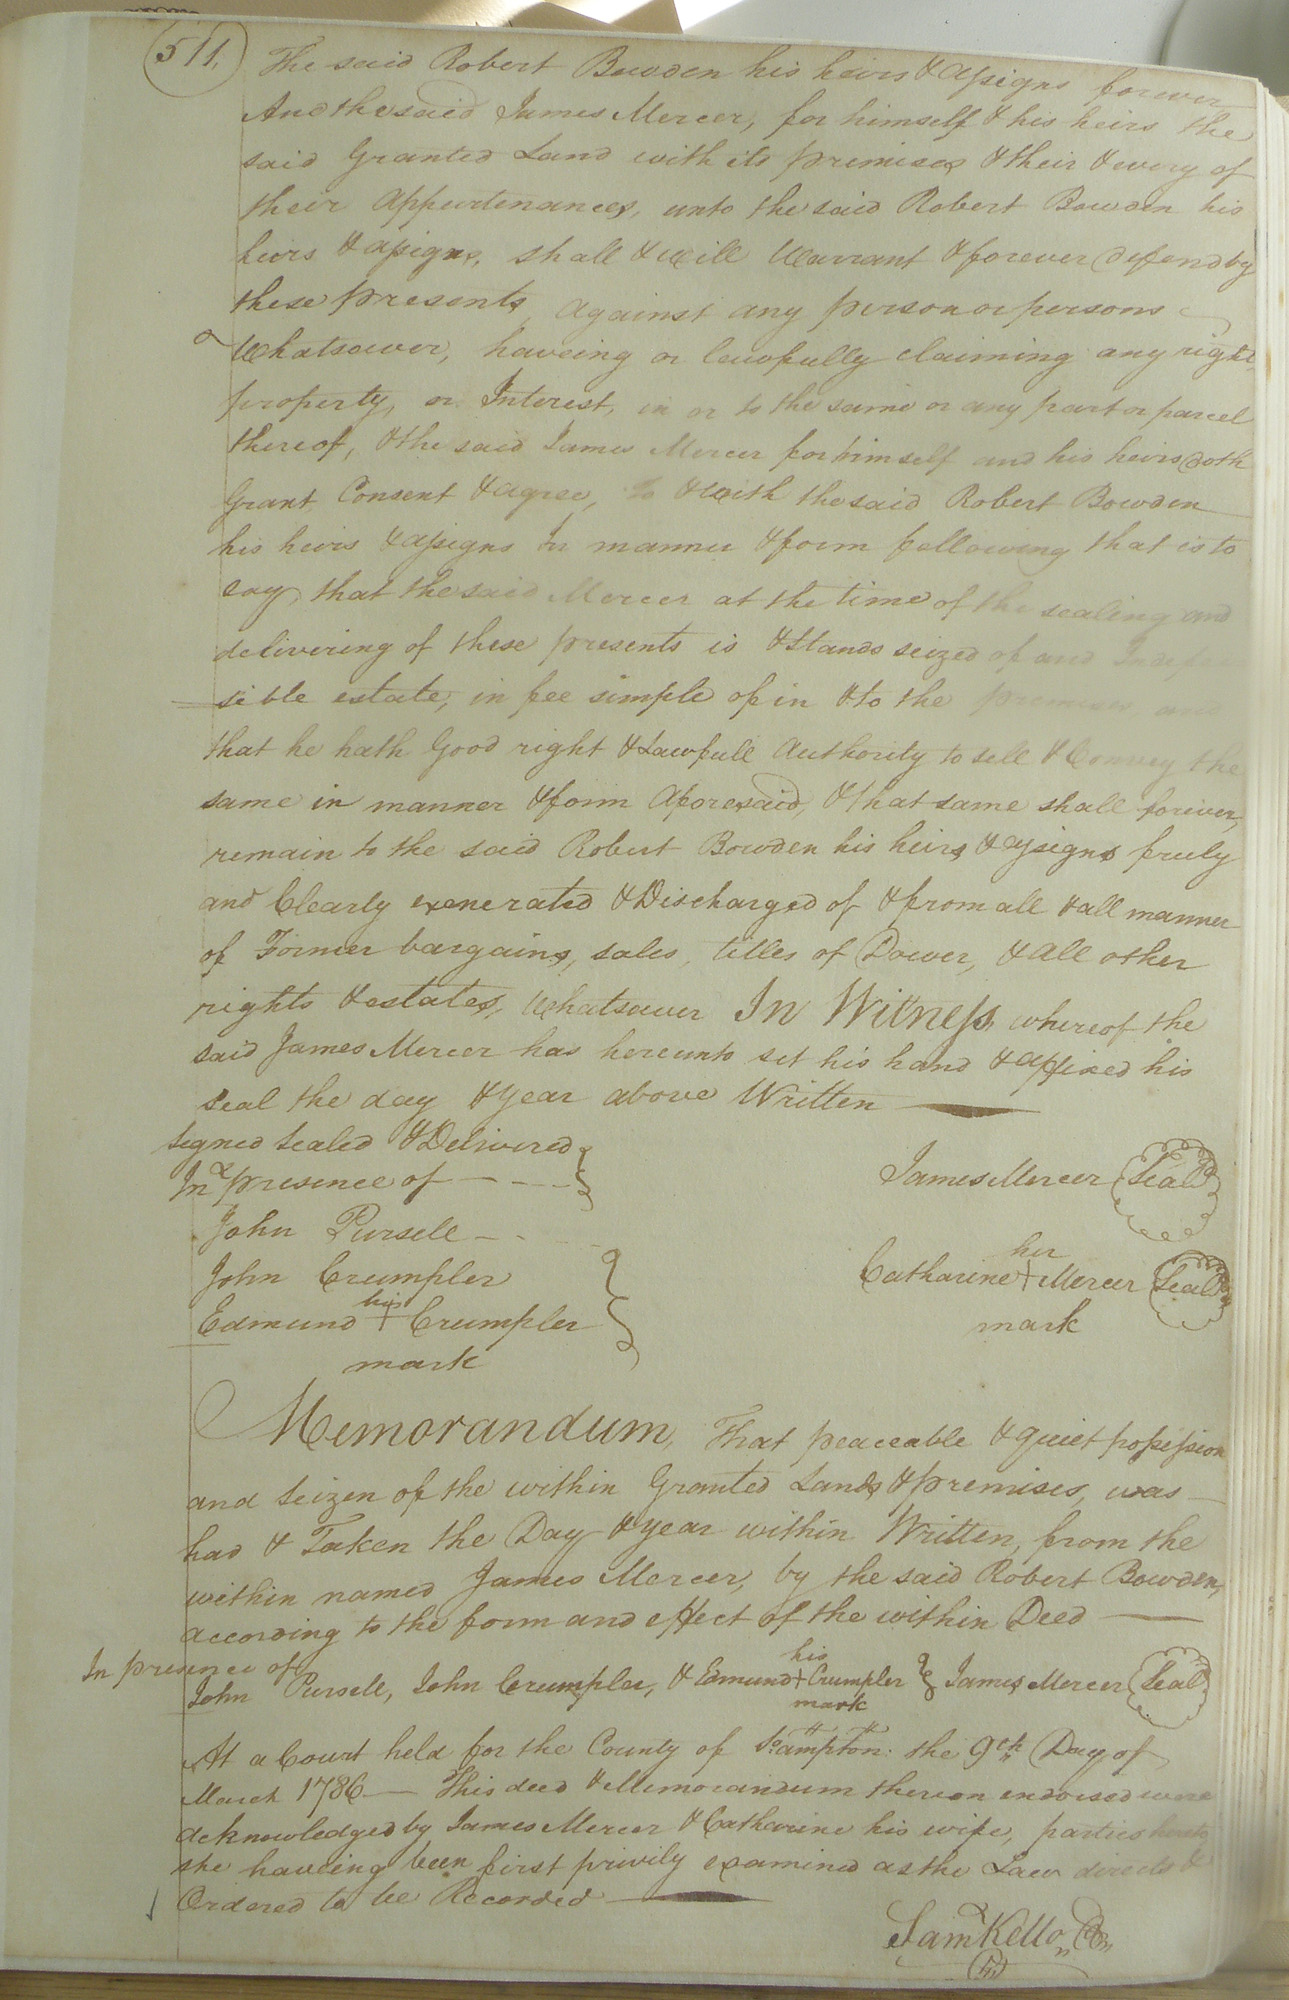 511.
The said Robert Bowden his heirs & assigns forever
And the said James Mercer, for himself & his heirs the
said Granted Land with its premises & their & every of
their Appurtenances, unto the said Robert Bowden his
heirs & assigns, shall & will Warrant & forever defend by
these presents, against any person or persons
Whatsoever, haveing or lawfully claiming any right,
property, or Interest, in or to the same or any part or parcel
thereof, & the said James Mercer for himself and his heirs doth
Grant Consent & agree, to & with the said Robert Bowden
his heirs & assigns In manner & form following that is to
say, that the said Mercer at the time of the sealing and
delivering of these presents is & Stands seized of and Indefea
sible estate, in fee simple of in & to the premises and
that he hath Good right & Lawfull Authority to sell & Convey the
same in manner & form Aforesaid, & that same shall forever,
remain to the said Robert Bowden his heirs & assigns freely
and Clearly exenerated & Discharged of & from all & all manner
of Former bargains, sales, titles of Dower, & all other
rights & estates, Whatsoever In Witness, whereof the
said James Mercer has hereunto set his hand & affixed his
seal the day & year above Written
Signed Sealed & Delivered
In presence of
James Mercer Seal
John Pursell
John Crumpler
her
Catharine + Mercer Seal
mark
his
Edmund + Crumpler
mark
Memorandum, That peaceable & quiet possession
and Seizen of the within Granted Lands & premises, was
had & Taken the Day & year within Written, from the
within named James Mercer, by the said Robert Bowden,
according to the form and effect of the within Deed
In presence of
his
John Pursell, John Crumpler, & Edmund + Crumpler James Mercer Seal
mark
At a Court held for the County of So.ampton: the 9th Day of
March 1786 This deed & Memorandum thereon endorsed were
acknowledged by James Mercer & Catharine his wife, parties hereto
she haveing been first privily examined as the Law directs &
Ordered to be Recorded
Saml Kello